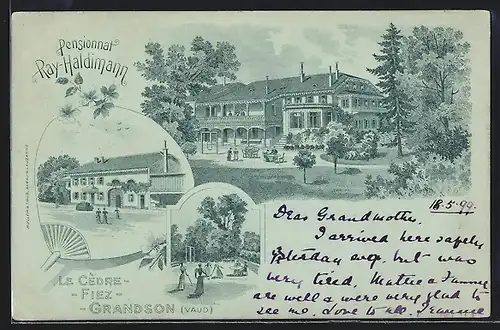 Pensionnat
Ray-Haldimann
LE CÈDRE -
- FIEZ -
- GRANDSON (VAUD)
18-5-99.
Dear Grandmother,
I arrived here safely
yesterday evg. but was
very tired. Mattie &
are well & were very glad to
see me. Love to all.